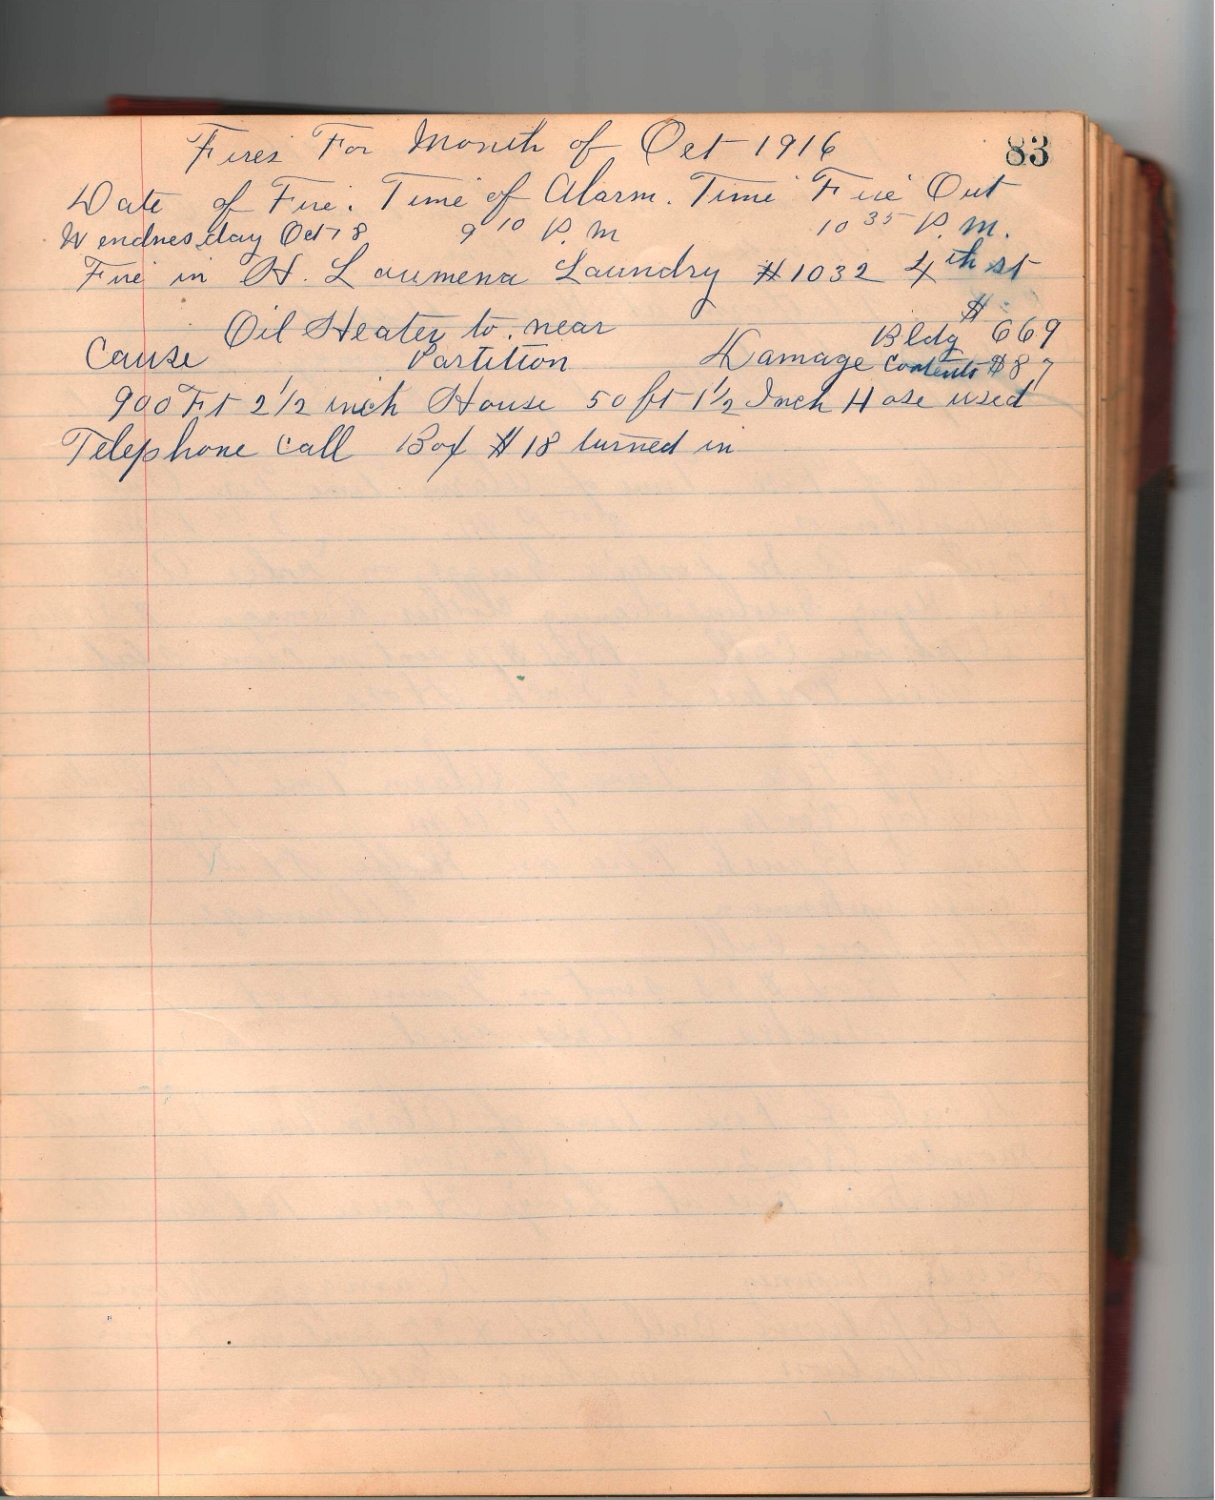 Fires For Month of Oct 1916
83
Date of Fire. Time of Alarm. Time Fire Out
Wendnesday Oct 18 9 10 P.m 10 35 P.m.
Fire in H. Laumena Laundry #1032 4th st
Oil Heater to near Bldg $669
Cause Partition Damage Contents $87
900 Ft 2 1/2 inch House 50 ft 1 1/2 Inch Hose used
Telephone Call Box #18 turned in